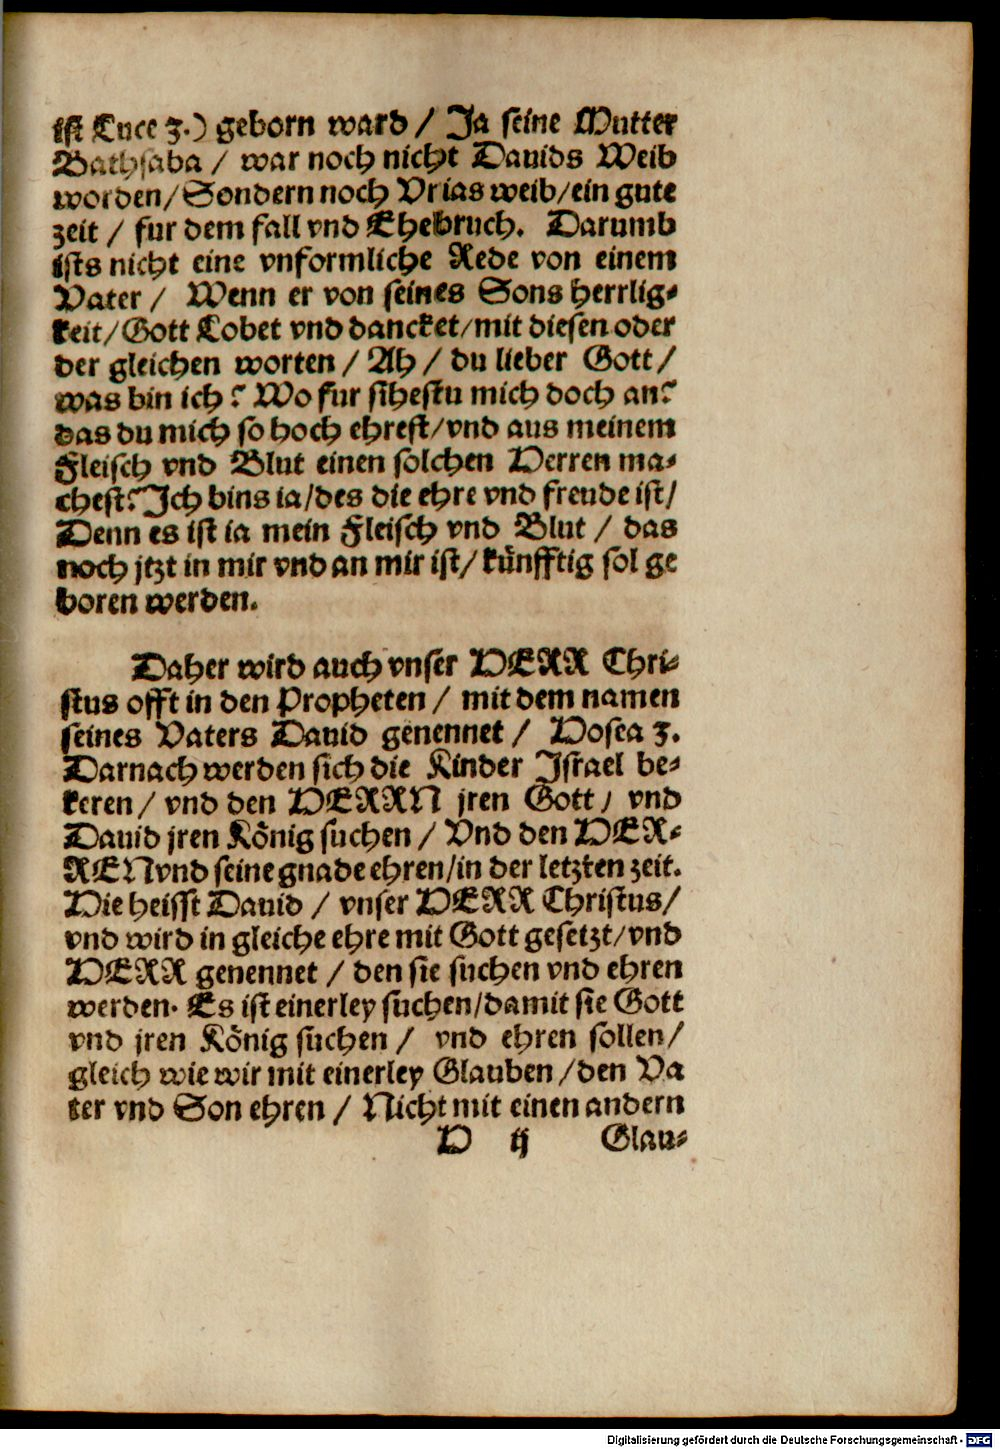 ist Luce 3.) geborn ward / Ja seine Mutter
Bathsaba / war noch nicht Dauids Weib
worden / Sondern noch Vrias weib / ein gute
zeit / fur dem fall vnd Ehebruch. Darumb
ists nicht eine vnformliche Rede von einem
Vater / Wenn er von seines Sons herrlig-
keit / Gott Lobet vnd dancket / mit diesen oder
der gleichen worten / Ah / du lieber Gott /
was bin ich? Wo fur sihestu mich doch an?
das du mich so hoch ehrest / vnd aus meinem
Fleisch vnd Blut einen solchen Herren ma-
chest? Ich bins ia / des die ehre vnd freude ist /
Denn es ist ia mein Fleisch vnd Blut / das
noch jtzt in mir vnd an mir ist / künfftig sol ge
boren werden.
Daher wird auch vnser HERR Chri-
stus offt in den Propheten / mit dem namen
seines Vaters Dauid genennet / Hosea 3.
Darnach werden sich die Kinder Israel be-
keren / vnd den HERRN jren Gott / vnd
Dauid jren König suchen / Vnd den HER-
REN vnd seine gnade ehren / in der letzten zeit.
Hie heisst Dauid / vnser HERR Christus /
vnd wird in gleiche ehre mit Gott gesetzt / vnd
HERR genennet / den sie suchen vnd ehren
werden. Es ist einerley suchen / damit sie Gott
vnd jren König suchen / vnd ehren sollen /
gleich wie wir mit einerley Glauben / den Va
ter vnd Son ehren / Nicht mit einen andern
H ij Glau-
Digitalisierung gefördert durch die Deutsche Forschungsgemeinschaft - DFG